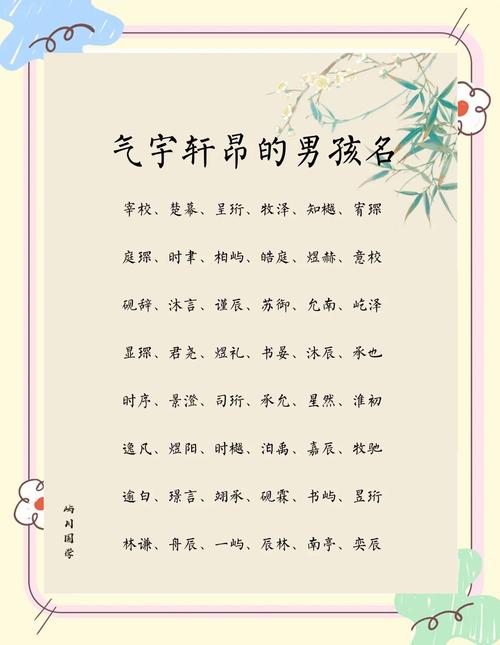 气宇轩昂的男孩名
宰校、楚幕、呈珩、牧泽、知樾、宥琛
庭琛、时聿、相屿、皓庭、煜赫、意校
砚辞、沐言、谨辰、苏御、允南、屹泽
显琛、君尧、煜礼、书晏、沐辰、承也
时序、景澄、司珩、承允、星然、淮初
逸凡、煜阳、时樾、洎禹、嘉辰、牧驰
逾白、璟言、翊承、砚霖、书屿、昱珩
林谦、舟辰、一屿、辰林、南亭、奕辰
屿川国学